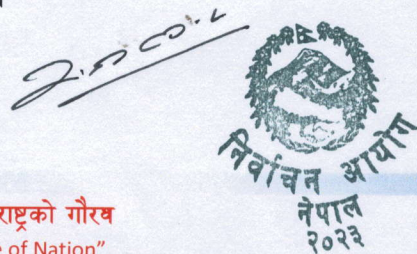 निर्वाचन आयोग
नेपाल
२०२३
राष्ट्रको गौरव
of Nation"